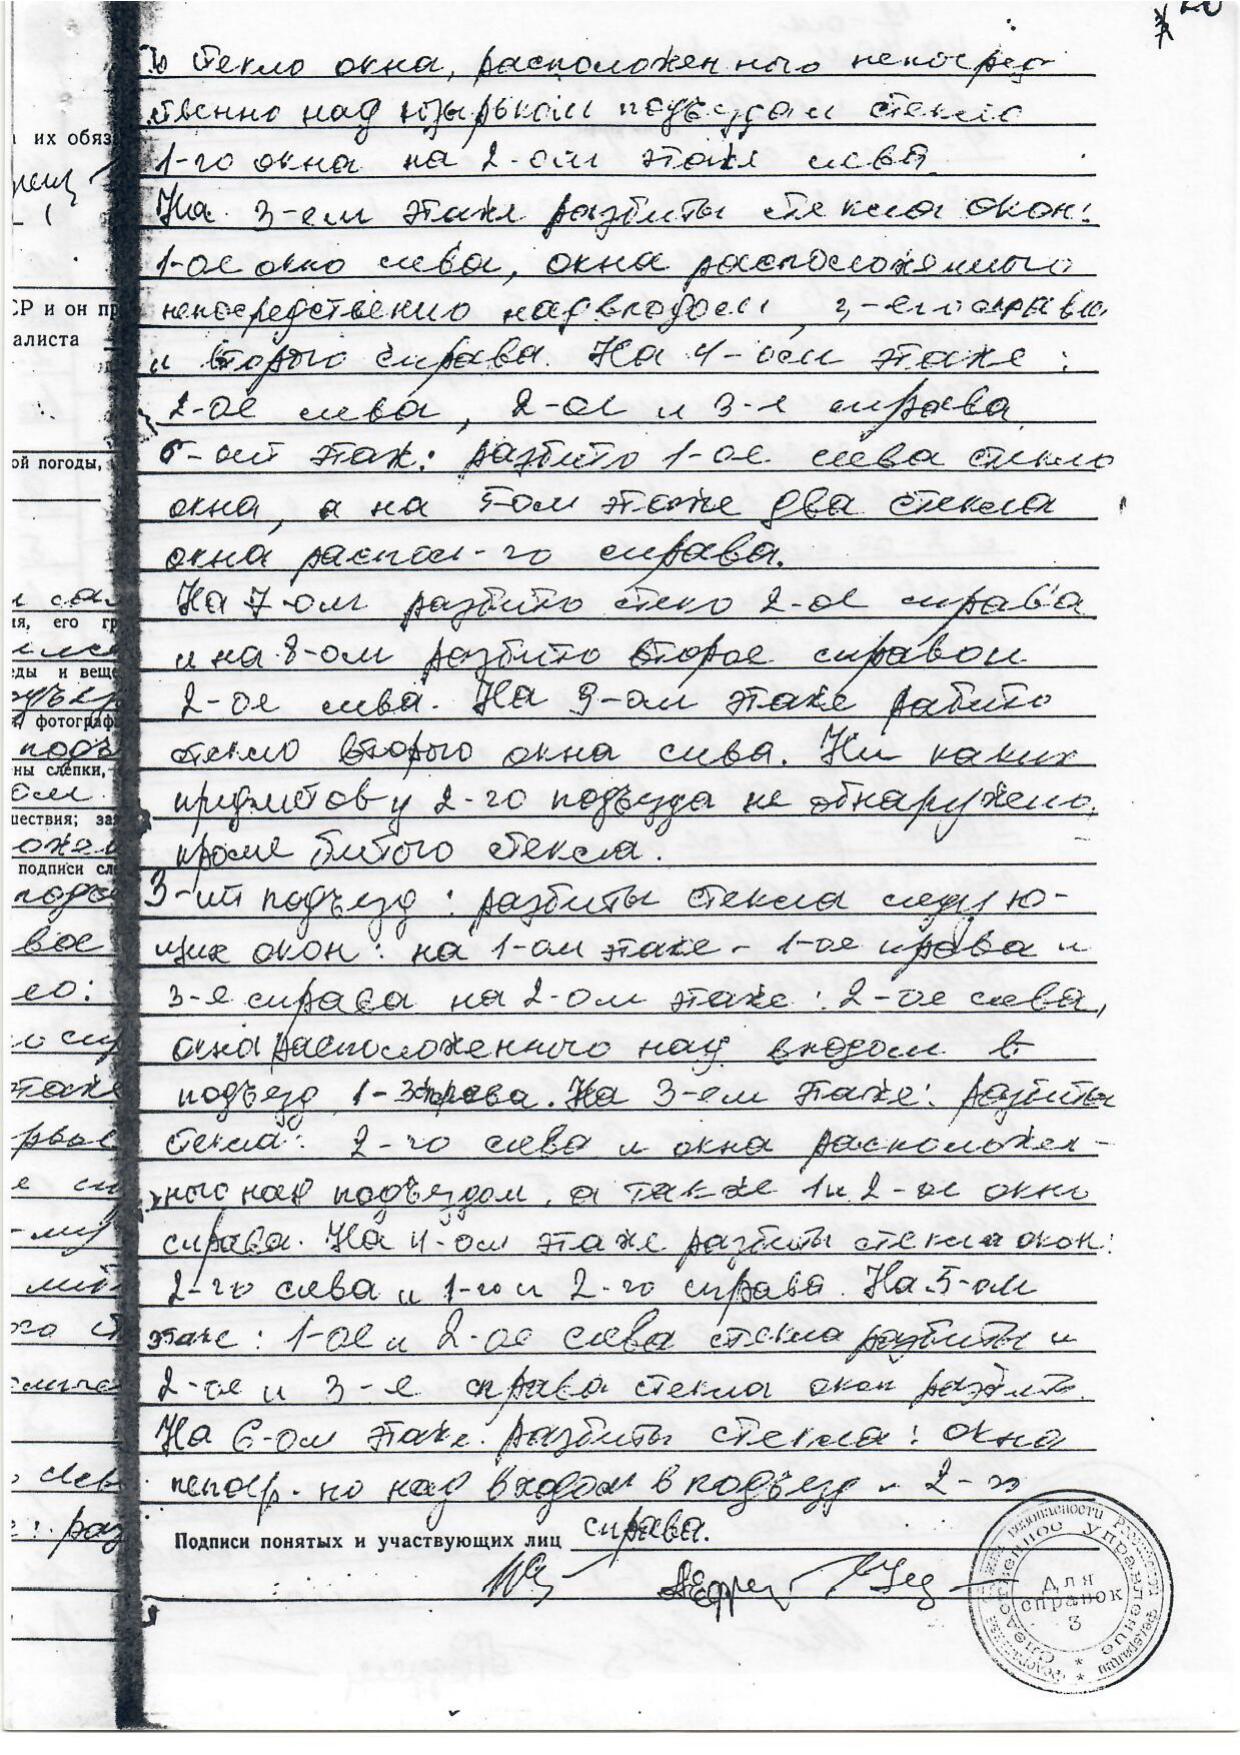 20
стекло окна, расположенного непосред-
ственно над козырьком подъезда и стекло
1-го окна на 2-ом этаже слева.
На 3-ем этаже разбиты стекла окон:
1-ое окно слева, окна расположенного
непосредственно над входом, 3-его справа
и второго справа. На 4-ом этаже:
2-ое слева, 2-ое и 3-е справа
6-ой этаж: разбито 1-ое слева стекло
окна, а на 5-ом этаже два стекла
окна распол-го справа.
На 7-ом разбито стекло 2-ое справа
и на 8-ом разбито второе справа и
2-ое слева. На 9-ом этаже разбито
стекло второго окна слева. Ни каких
предметов у 2-го подъезда не обнаружено,
кроме битого стекла.
3-ий подъезд: разбиты стекла следую-
щих окон: на 1-ом этаже - 1-ое справа и
3-е справа на 2-ом этаже: 2-ое слева,
окна расположенного над входом в
подъезд 1-3 справа. На 3-ем этаже: разбиты
стекла: 2-го слева и окна расположен-
ного над подъездом, а также 1 и 2-ое окно
справа. На 4-ом этаже разбиты стекла окон:
2-го слева и 1-го и 2-го справа. На 5-ом
этаже: 1-ое и 2-ое слева стекла разбиты и
2-ое и 3-е справа стекла окон разбиты.
На 6-ом этаже разбиты стекла: окна
непоср-но над входом в подъезд и 2-го
справа.
Подписи понятых и участвующих лиц
их обяз
СР и он пр
алиста
ой погоды,
ия, его гр
еды и веще
фотограф
подъ
ны слепки,
шествия; за
подписи сл
Федеральная служба безопасности Российской Федерации
Следственное управление
Для
справок
3